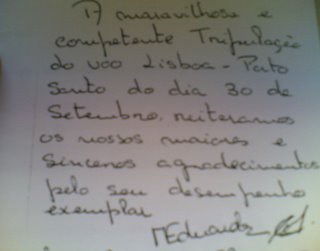 A maravilhosa e
competente Tripulação
do voo Lisboa - Porto
Santo do dia 30 de
Setembro, reiteramos
os nossos maiores e
sinceros agradecimentos
pelo seu desempenho
exemplar
MEduarda